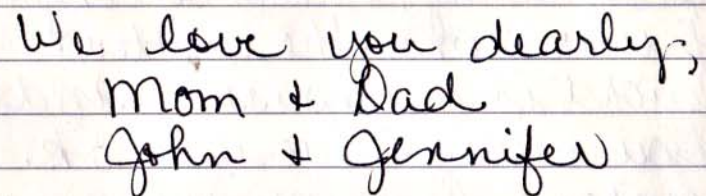 We love you dearly,
Mom & Dad
John & Jennifer